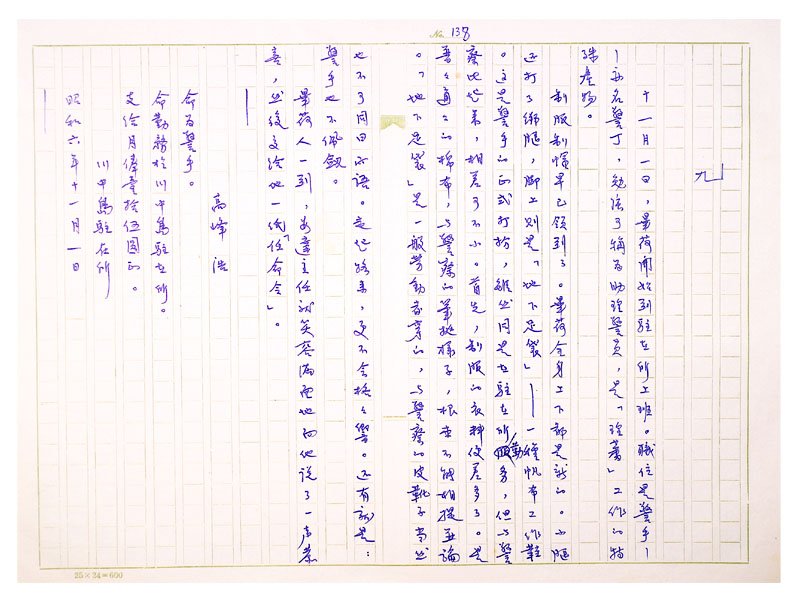 No. 138
九
十一月一日，畢荷開始到駐在所上班。職位是警手—
—亦名警丁，勉強可稱為助理警員，是「理蕃」工作的特
殊產物。
制服制帽早已領到了。畢荷全身上下都是新的。小腿
還打了綁腿，腳上則是「地下足袋」——一種帆布工作鞋
。這是警手的正式打扮，雖然同是在駐在所勤務，但與警
察比起來，相差可不小。首先，制服的衣料便差多了。是
普普通通的棉布，與警察的筆挺樣子，根本不能相提並論
。「地下足袋」是一般勞動者穿的，與警察的皮靴子當然
也不可同日而語。走起路來，更不會格格響。還有就是：
警手也不佩劍。
畢荷人一到，安達主任就笑容滿面地向他說了一聲恭
喜，然後交給他一紙「任命令」。
——
高峰浩
命為警手。
命勤務於川中島駐在所。
支給月俸壹拾伍圓的。
川中島駐在所
昭和六年十一月一日
——
25×24=600